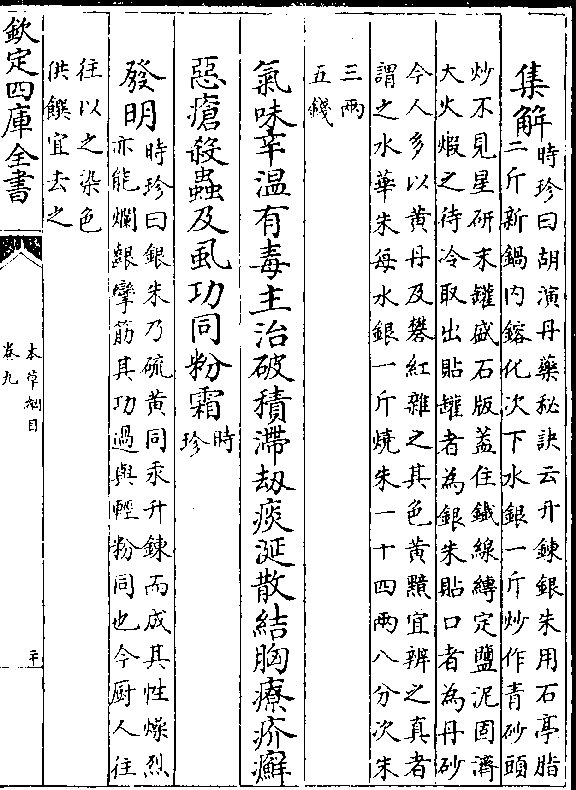 集解時珍曰胡演丹藥秘訣云升鍊銀朱用石亭脂
二斤新鍋內鎔化次下水銀一斤炒作青砂頭
炒不見星研末罐盛石版蓋住鐵線縛定鹽泥固濟
大火煅之待冷取出貼罐者為銀朱貼口者為丹砂
今人多以黄丹及礬紅雜之其色黄黯宜辨之真者
謂之水華朱每水銀一斤燒朱一十四兩八分次朱
三兩
五錢
氣味辛温有毒主治破積滯劫痰涎散結胸療疥癬
惡瘡殺蟲及虱功同粉霜時
珍
發明時珍曰銀朱乃硫黄同汞升鍊而成其性燥烈
亦能爛齦攣筋其功過與輕粉同也今厨人往
往以之染色
供饌宜去之
欽定四庫全書
本草綱目
卷九
二十